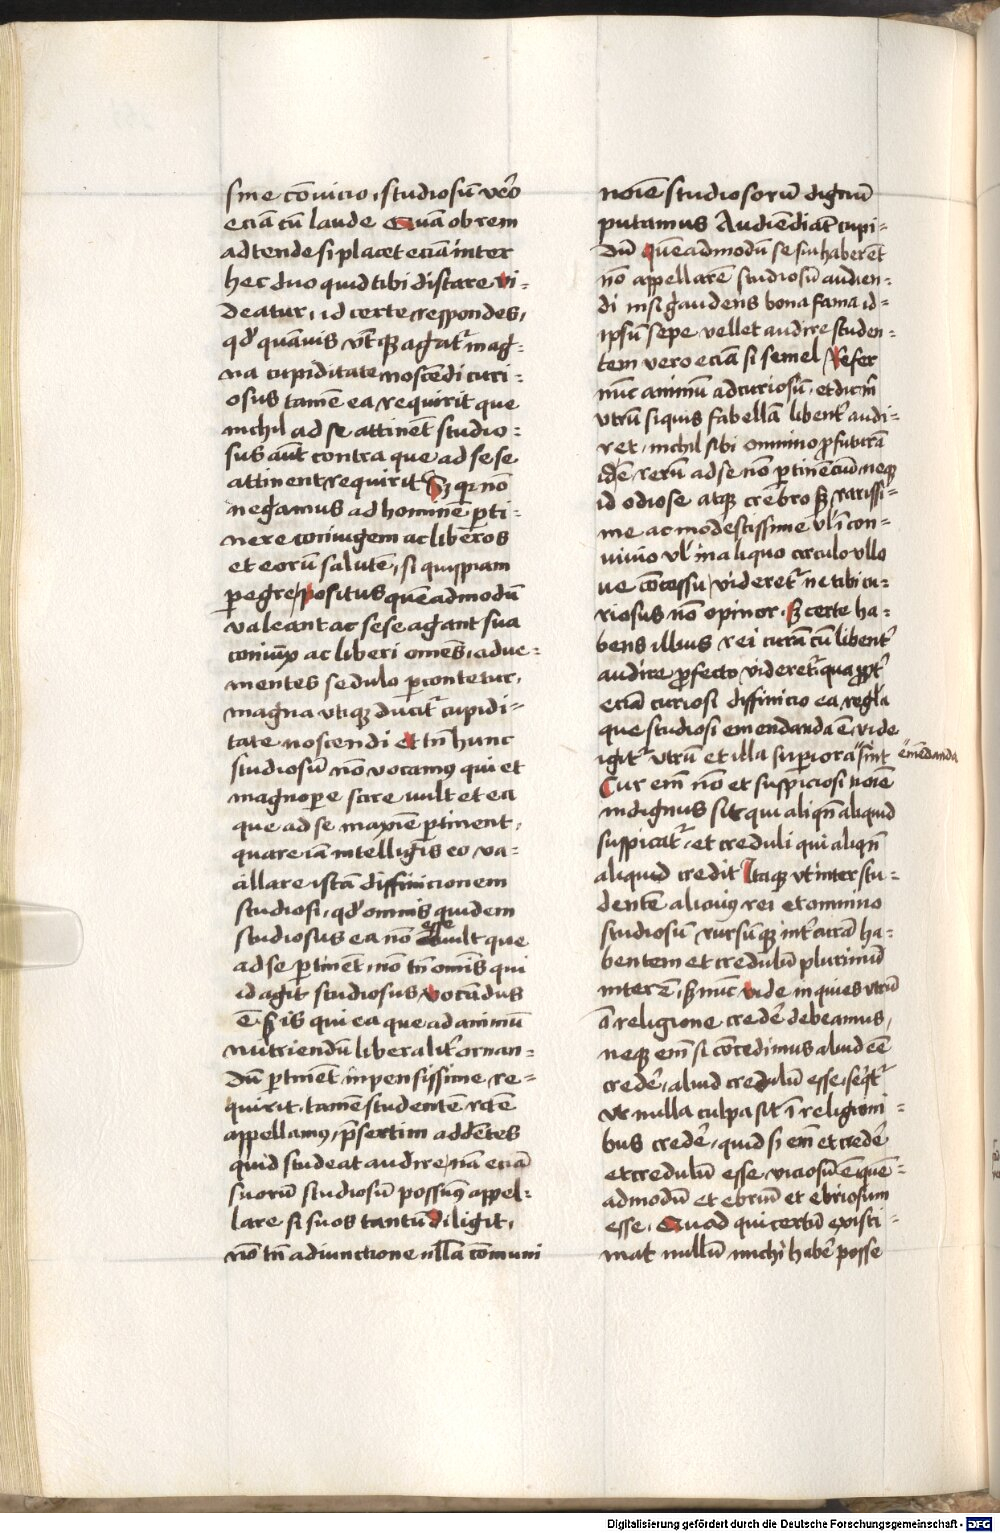 sine cōuicio, studiosū ve͛o
eciā cū laude Quam ob rem
adtende si placet eciā inter
hec duo quid tibi distare vi-
deatur, id certe respondes,
qd͛ quāuis vt͛qꝫ agat͛ mag-
na cupiditate noscēdi curi-
osus tamē ea requirit que
nichil ad se attinēt studio-
sus aūt contra que ad se se
attinent requirit Sꝫ qꝛ nō
negamus ad hominē ꝑti-
nere coniugem ac liberos
et eorū salutē, si quispiam
ꝑegre positus quēadmodū
valeant ac sese agant sua
coniux ac liberi om̄es, adue-
nientes sedulo ꝑcontetur,
magna vtiqꝫ ducit͛ cupidi-
tate noscendi et tn̄ hunc
studiosū nō vocamꝰ qui et
magnope͛ scire vult et ea
que ad se maxīe ꝑtinent,
quare iā intelligis eo va-
cillare istā diffinicionem
studiosi, qd͛ omnis quidem
studiosus ea nō esse vult que
ad se ꝑtinēt, nō tn̄ om̄is qui
id agit studiosus vocādus
ē sꝫ is qui ea que ad animū
nutriendū liberalit͛ ornan-
dū ꝑtinēt inpensissime re-
quirit, tamē studentē rc̄tē
appellamꝰ, p̄sertim addētes
quid studeat audire, nā eciā
suorū studiosū possumꝰ appel-
lare si suos tantū diligit,
nō tn̄ adiunctione nll̄a cōmuni
noīe studiosorū dignū
putamus Audiēdi aūt cupi-
dū quēadmodū se sui haberēt
nō appellarē studiosū audien-
di nisi gaudens bona fama id-
ipsū sepe vellet audire studen-
tem vero eciā si semel Refer
nūc animū ad curiosū, et dic m̄
vtrū siquis fabellā libent͛ audi-
ret, nichil sibi omnino ꝓfuturā
id ē rerū ad se nō ꝑtinēciū neqꝫ
id odiose atqꝫ crebro sꝫ rarissi-
me ac modestissime vl͛ ī con-
viuio vl͛ in aliquo circulo vllo
ue cōcessu, videret͛ ne tibi cu-
riosus nō opinor, sꝫ certe ha-
bens illius rei curā cū libent͛
audire ꝓfecto videret͛, qua ꝓpt͛
eciā curiosi diffinicio ea regl̄a
que studiosi emendanda ē, vide
igit͛ vtrū et illa suꝑiora sint emēdanda
Cur em̄ nō et suspiciosi noīe
indignus sit qui aliqn̄ aliquid
suspicat͛, et creduli qui aliqn̄
aliquid credit Itaqꝫ vt inter stu-
dentē alicuiꝰ rei et omnino
studiosū rursūqꝫ int͛ curā ha-
bentem et credulū plurimū
interē, sꝫ nūc vide inquies vtrū
ī religione crede͛ debeamus,
neqꝫ em̄ si cōcedimus aliud eē
crede͛, aliud credulū esse, seqt͛
vt nulla culpa sit ī religioni-
bus crede͛, quid si em̄ et crede͛
et credulū esse viciosū ē quē-
admodū et ebriū et ebriosum
esse, Quod qui certū existi-
mat nullū michi habe͛ posse